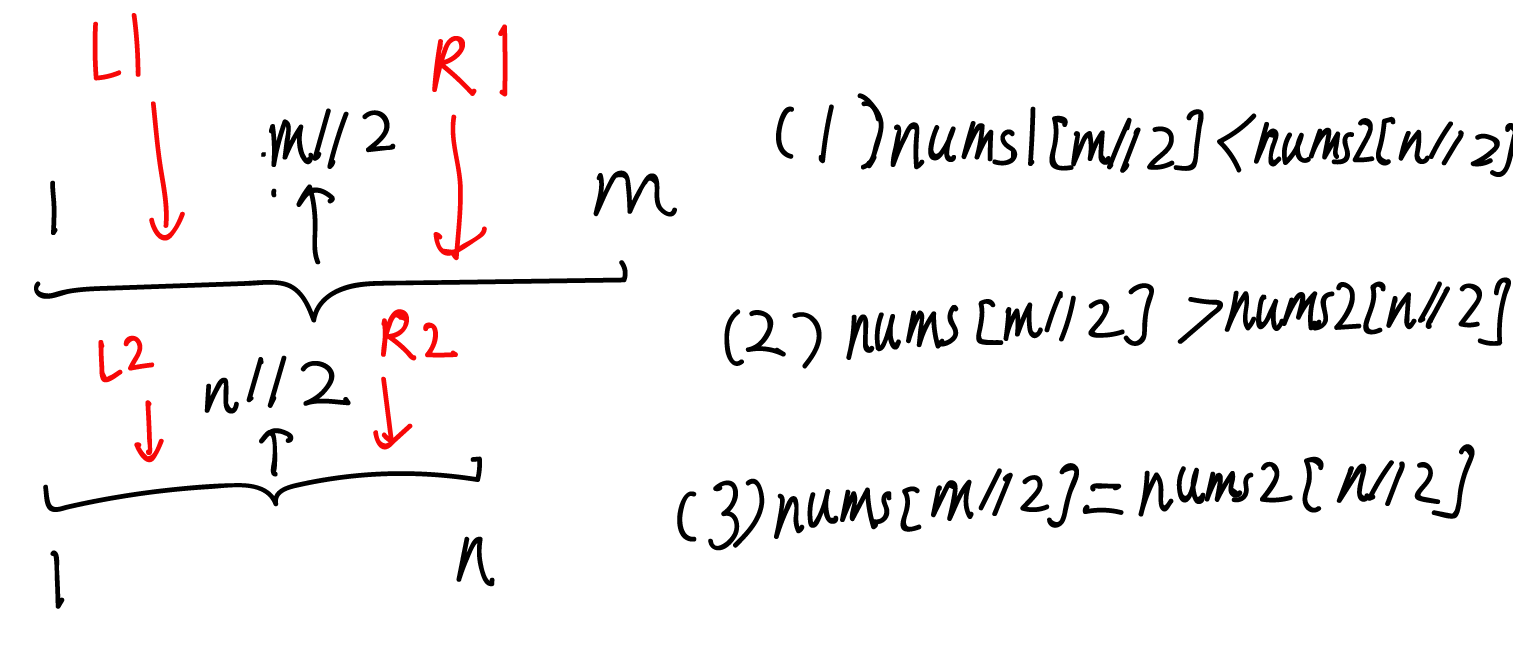 L1
R1
m//2
1
m
L2
R2
n//2
1
n
(1)nums1[m//2]<nums2[n//2]
(2) nums[m//2] >nums2[n//2]
(3)nums[m//2]=nums2[n//2]